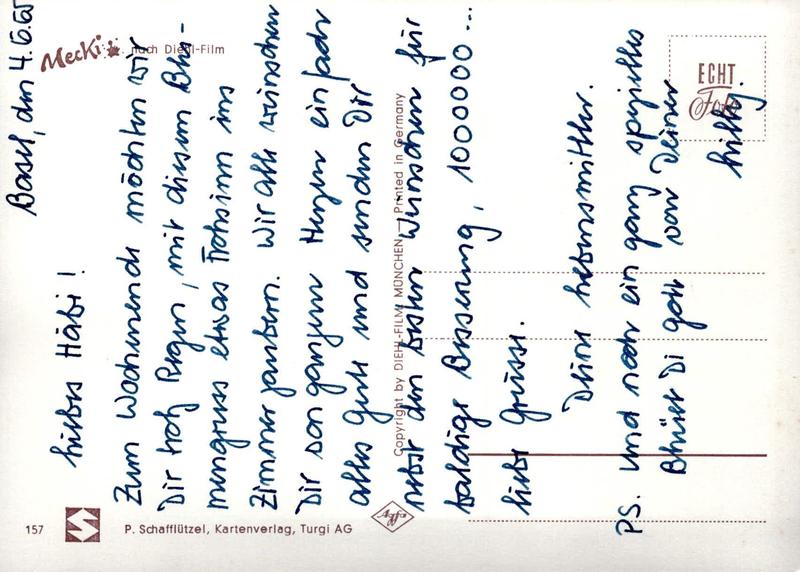 Mecki nach Diehl-Film
ECHT
Foto
Basel, den 4.6.65
Liebes Häbi!
Zum Wochenende möchten wir
Dir trotz Regen, mit diesem Blu-
mengruss etwas Frohsinn ins
Zimmer zaubern. Wir alle wünschen
Dir von ganzem Herzen einfach
alles Gute und senden Dir
nebst den besten Wünschen für
baldige Besserung, 1000000...
liebe Grüsse.
Deine
PS. Und noch ein ganz spezielles
Bhüet Di Gott von Deiner
Copyright by DIEHL-FILM MÜNCHEN — Printed in Germany
157
P. Schafflützel, Kartenverlag, Turgi AG
Agfa